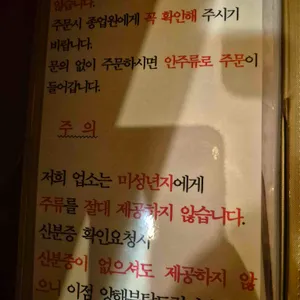 않습니다.
주문시 종업원에게 꼭 확인해 주시기
바랍니다.
문의 없이 주문하시면 안주류로 주문이
들어갑니다.
주 의
저희 업소는 미성년자에게
주류를 절대 제공하지 않습니다.
신분증 확인요청시
신분증이 없으셔도 제공하지 않
으니 이점 양해부탁드리